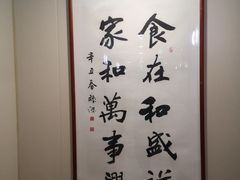 食在和盛
家和萬事興
辛丑春